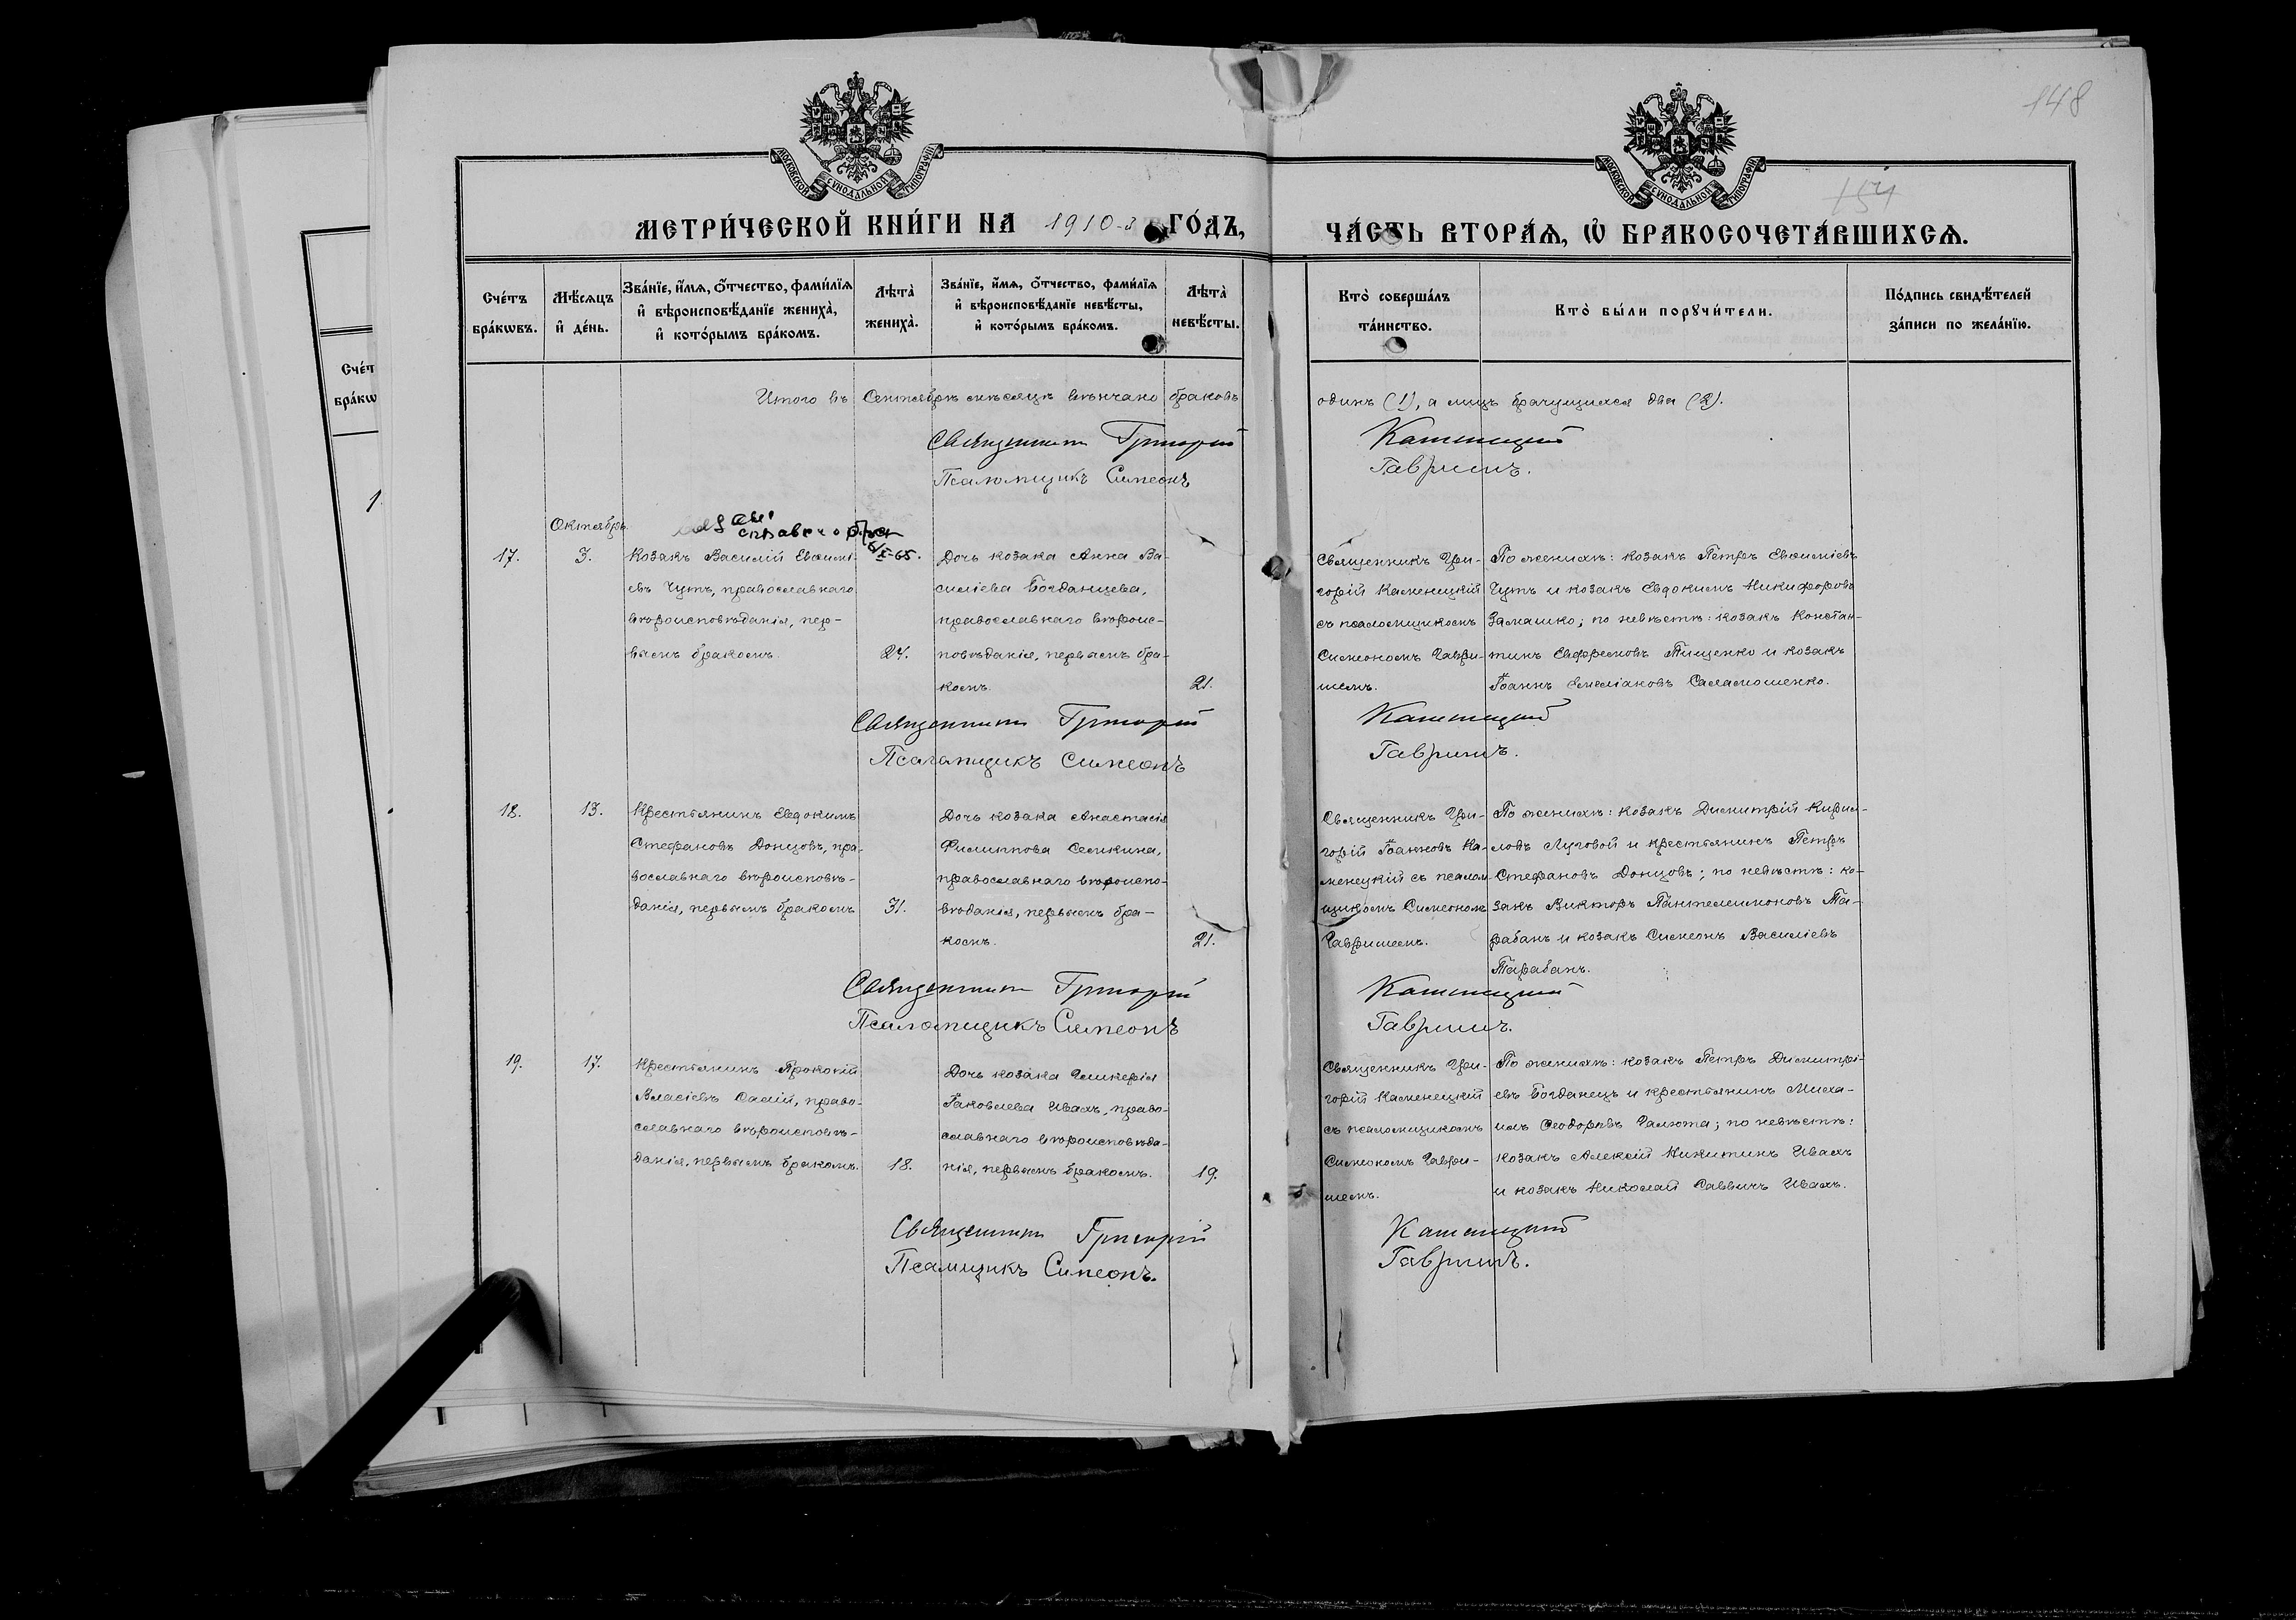 148
154
МОСКОВСКОЙ СѴНОДАЛЬНОЙ ТИПОГРАФІИ
МОСКОВСКОЙ СѴНОДАЛЬНОЙ ТИПОГРАФІИ
МЕТРИ́ЧЕСКОЙ КНИ́ГИ НА 1910-й ГО́ДЪ,
ЧА́СТЬ ВТОРА́Ѧ, Ѽ БРАКОСОЧЕТА́ВШИХСѦ.
Сче́тъ бра́кѡвъ.
Мѣ́сѧцъ и҆ де́нь.
Зва́нїе, и҆́мѧ, ѻ҆́тчество, фами́лїѧ и҆ вѣроисповѣ́данїе жениха̀, и҆ кото́рымъ бра́комъ.
Лѣта̀ жениха̀.
Зва́нїе, и҆́мѧ, ѻ҆́тчество, фами́лїѧ и҆ вѣроисповѣ́данїе невѣ́сты, и҆ кото́рымъ бра́комъ.
Лѣта̀ невѣ́сты.
Кто̀ соверша́лъ та́инство.
Кто̀ бы́ли порꙋчи́тели.
По́дпись свидѣ́телей за́писи по жела́нїю.
Итого въ Сентябрѣ мѣсяцѣ вѣнчано браковъ одинъ (1), а лицъ брачущихся два (2).
Священникъ Григорій Каменецкій
Псаломщикъ Симеонъ Гавришъ.
Октябрь
17.
3.
Козакъ Василій Евѳимі-
евъ Чутъ, православнаго
вѣроисповѣданія, пер-
вымъ бракомъ.
24.
Дочь козака Анна Ва-
силіева Богданцева,
православнаго вѣроис-
повѣданія, первымъ бра-
комъ.
21.
Священникъ Гри-
горій Каменецкій
съ псаломщикомъ
Симеономъ Гаври-
шемъ.
По женихѣ: козакъ Петръ Евѳиміевъ
Чутъ и козакъ Евдокимъ Никифоровъ
Замашко; по невѣстѣ: козакъ Констан-
тинъ Евфремовъ Тищенко и козакъ
Іоаннъ Емеліановъ Саламошенко.
Священникъ Григорій Каменецкій
Псаломщикъ Симеонъ Гавришъ.
18.
13.
Крестьянинъ Евдокимъ
Стефановъ Донцовъ, пра-
вославнаго вѣроисповѣ-
данія, первымъ бракомъ
31.
Дочь козака Анастасія
Филиппова Семкина,
православнаго вѣроиспо-
вѣданія, первымъ бра-
комъ.
21.
Священникъ Гри-
горій Іоанновъ Ка-
менецкій съ псалом-
щикомъ Симеономъ
Гавришемъ.
По женихѣ: козакъ Димитрій Кирил-
ловъ Луговой и крестьянинъ Петръ
Стефановъ Донцовъ; по невѣстѣ: ко-
закъ Викторъ Пантелеимоновъ Та-
рабанъ и козакъ Симеонъ Василіевъ
Тарабанъ.
Священникъ Григорій Каменецкій
Псаломщикъ Симеонъ Гавришъ.
19.
17.
Крестьянинъ Прокопій
Власіевъ Салій, право-
славнаго вѣроисповѣ-
данія, первымъ бракомъ.
18.
Дочь козака Гликерія
Іаковлева Ивахъ, право-
славнаго вѣроисповѣда-
нія, первымъ бракомъ.
19.
Священникъ Гри-
горій Каменецкій
съ псаломщикомъ
Симеономъ Гаври-
шемъ.
По женихѣ: козакъ Петръ Димитрі-
евъ Богданецъ и крестьянинъ Миха-
илъ Ѳеодоровъ Галюта; по невѣстѣ:
козакъ Алексій Никитинъ Ивахъ
и козакъ Николай Саввичъ Ивахъ.
Священникъ Григорій Каменецкій
Псамщикъ Симеонъ. Гавришъ.